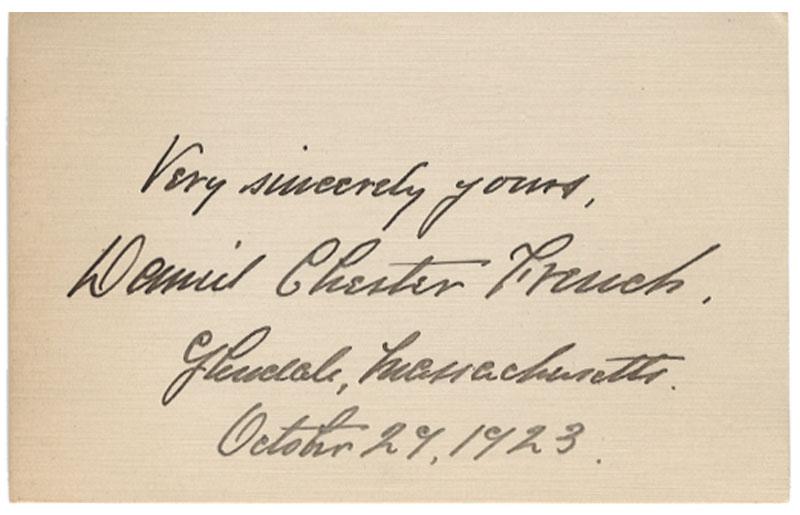 Very sincerely yours,
Daniel Chester French.
Glendale, Massachusetts.
October 29, 1923.